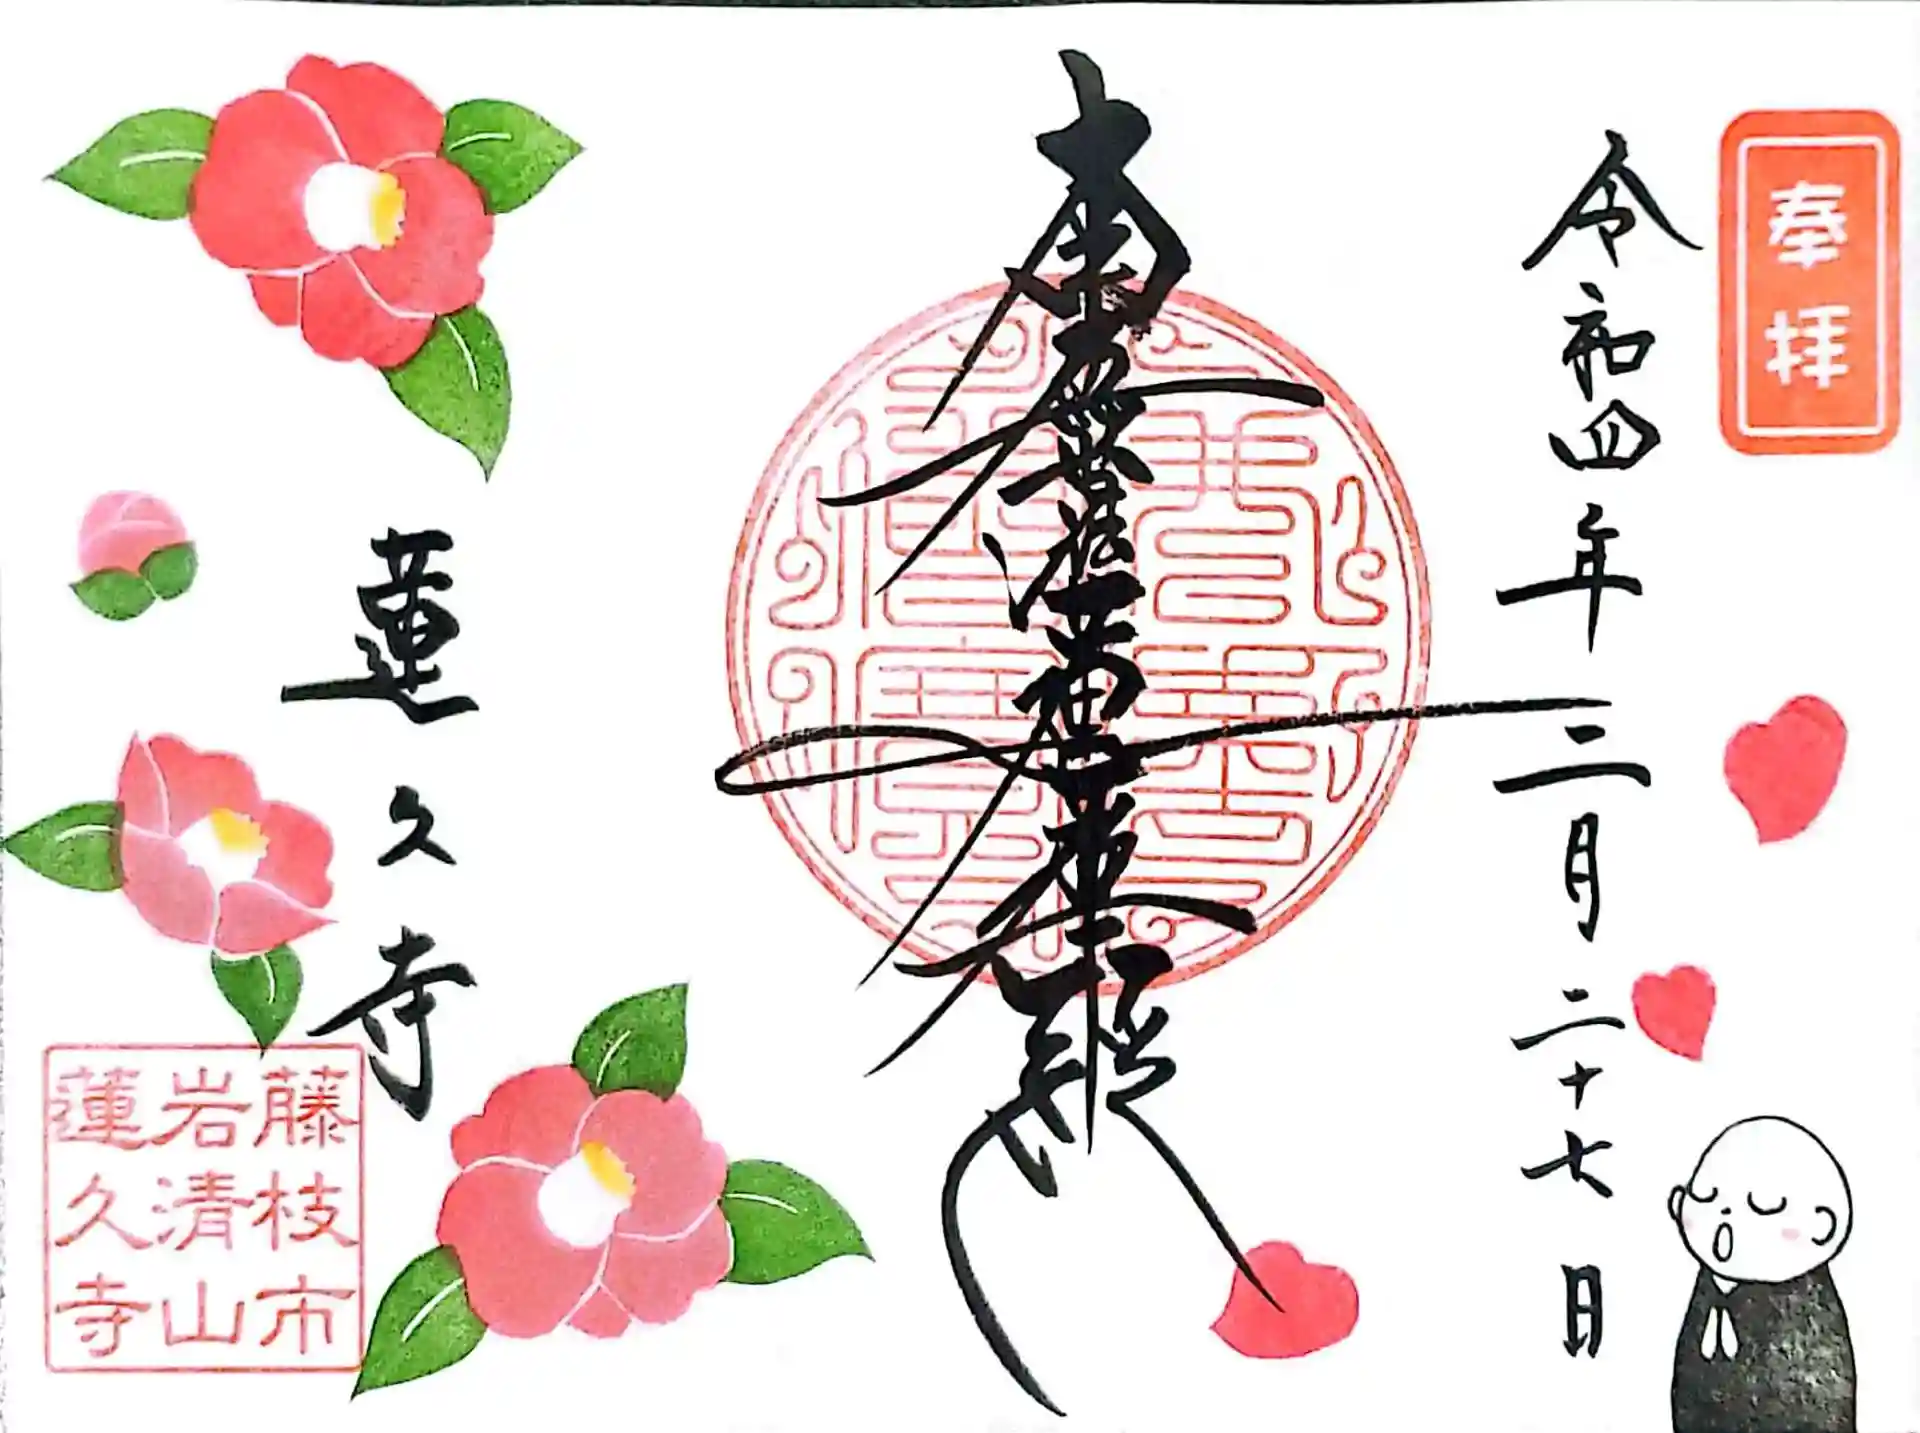 奉拝
令和四年三月二十七日
南無妙法蓮華經
蓮久寺
藤枝市
岩清山
蓮久寺